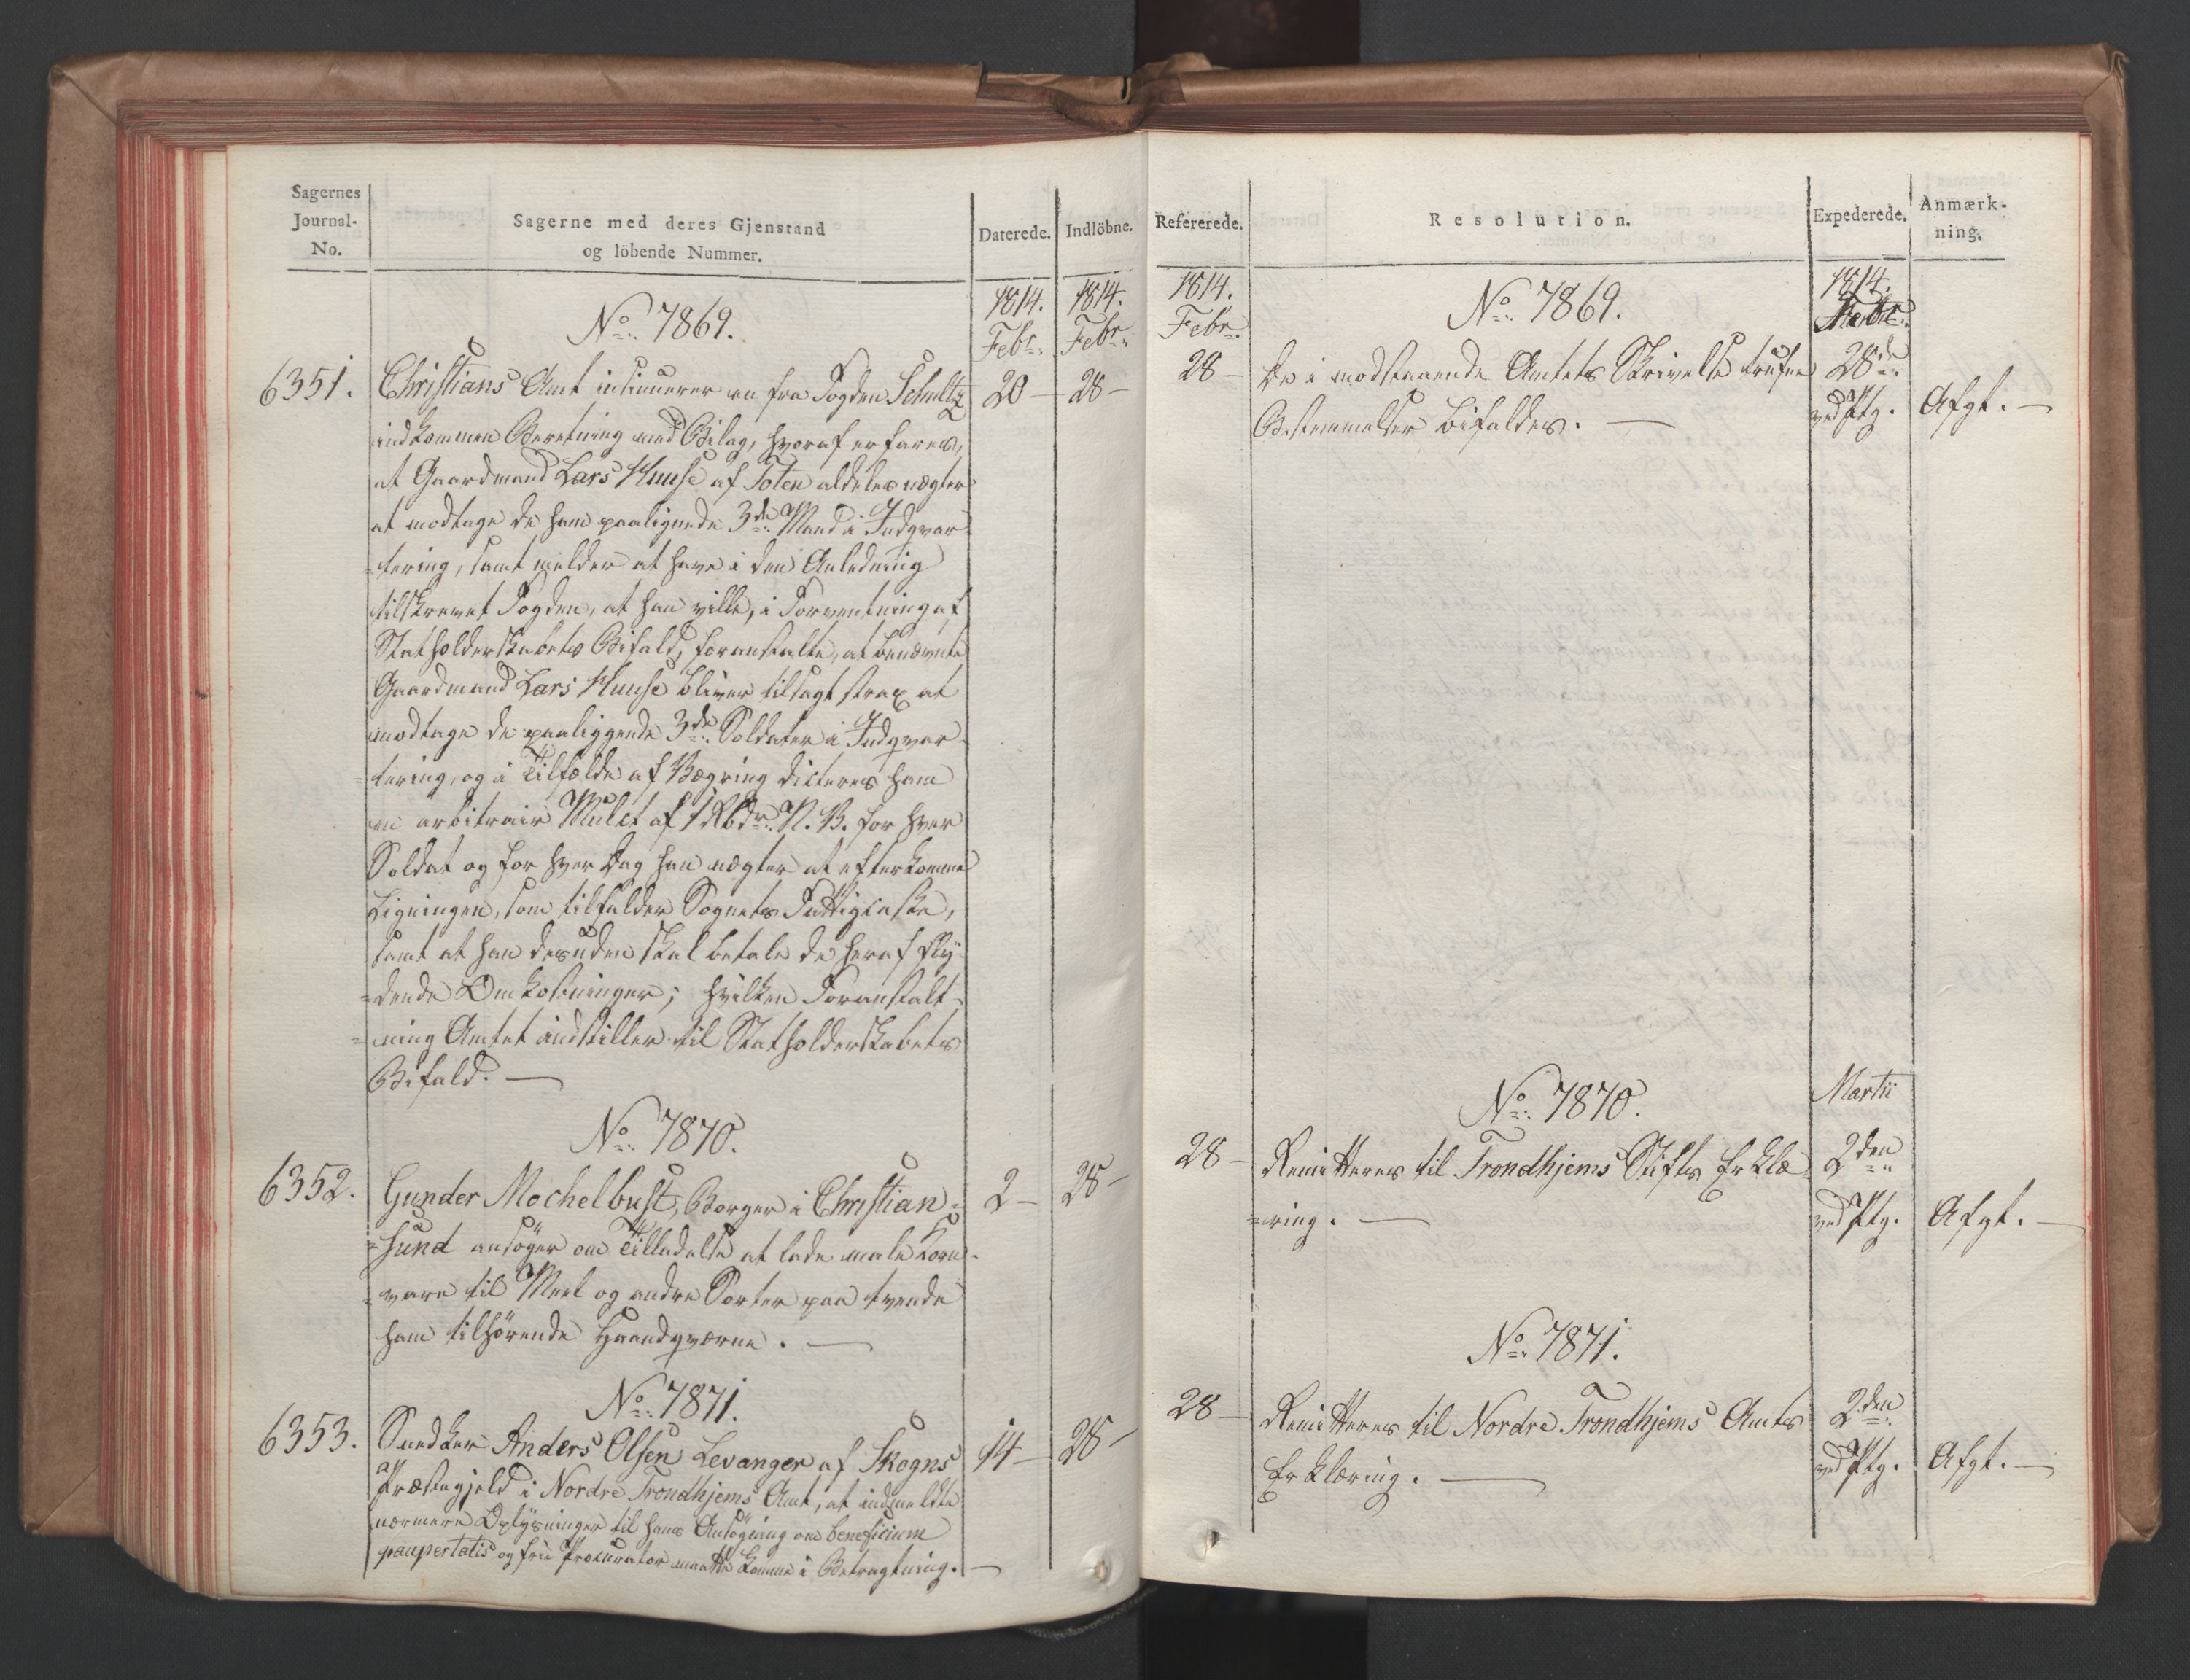 Sagernes
Journal-
No.
Sagerne med deres Gjenstand
og löbende Nummer.
Daterede.
Indlöbne.
1814.
Febr.
1814.
Febr.
No. 7869.
6351.
Christians Amt insinuerer en fra Fogden Schultz
20 —
28 —
indkommen Beretning med Bilag, hvoraf erfares,
at Gaardmand Lars Huuse af Toten aldeles nægter
at modtage de ham paalignede 3de Mand i Indqvar-
=tering, samt melder at have i den Anledning
tilskrevet Fogden, at han ville, i Forventning af
Statholderskabets Bifald, foranstalte, at benævnte
Gaardmand Lars Huuse bliver tilsagt strax at
modtage de paaliggende 3de Soldater i Indqvar-
=tering, og i Tilfælde af Vægring dicteres ham
en arbitrair Mulct af 1 Rbdr. N. V. for hver
Soldat og for hver Dag han nægter at efterkomme
Ligningen, som tilfalder Sognets Fattigkasse,
samt at han desuden skal betale de heraf fly-
=dende Omkostninger; hvilken Foranstalt-
=ning Amtet indstiller til Statholderskabets
Bifald. —
No. 7870.
6352.
Gunder Mochelbust, Borger i Christian-
2 —
28 —
=sund ansöger om Tilladelse at lade male Korn-
=vare til Meel og andre Sorter paa tvende
ham tilhörende Haandqværne. —
No. 7871.
6353.
Snedker Anders Olsen Levanger af Skogns
14 —
28 —
Præstegjeld i Nordre Trondhjems Amt, at indmeldte
nærmere Oplysninger til hans Ansögning om beneficium
paupertatis og frie Procurator maatte komme i Betragtning. —
Refererede.
Resolution.
Expederede.
Anmærk-
ning.
1814.
Febr.
1814.
No. 7869.
Febr.
28 —
De i modstaaende Amtets Skrivelse trufne
28de
Bestemmelser bifaldes. —
ved Ptg.
Afgt. —
No. 7870.
Martii
28 —
Remitteres til Trondhjems Stifts Erklæ-
2den
=ring. —
ved Ptg.
Afgt. —
No. 7871.
28 —
Remitteres til Nordre Trondhjems Amts
2den
Erklæring. —
ved Ptg.
Afgt. —